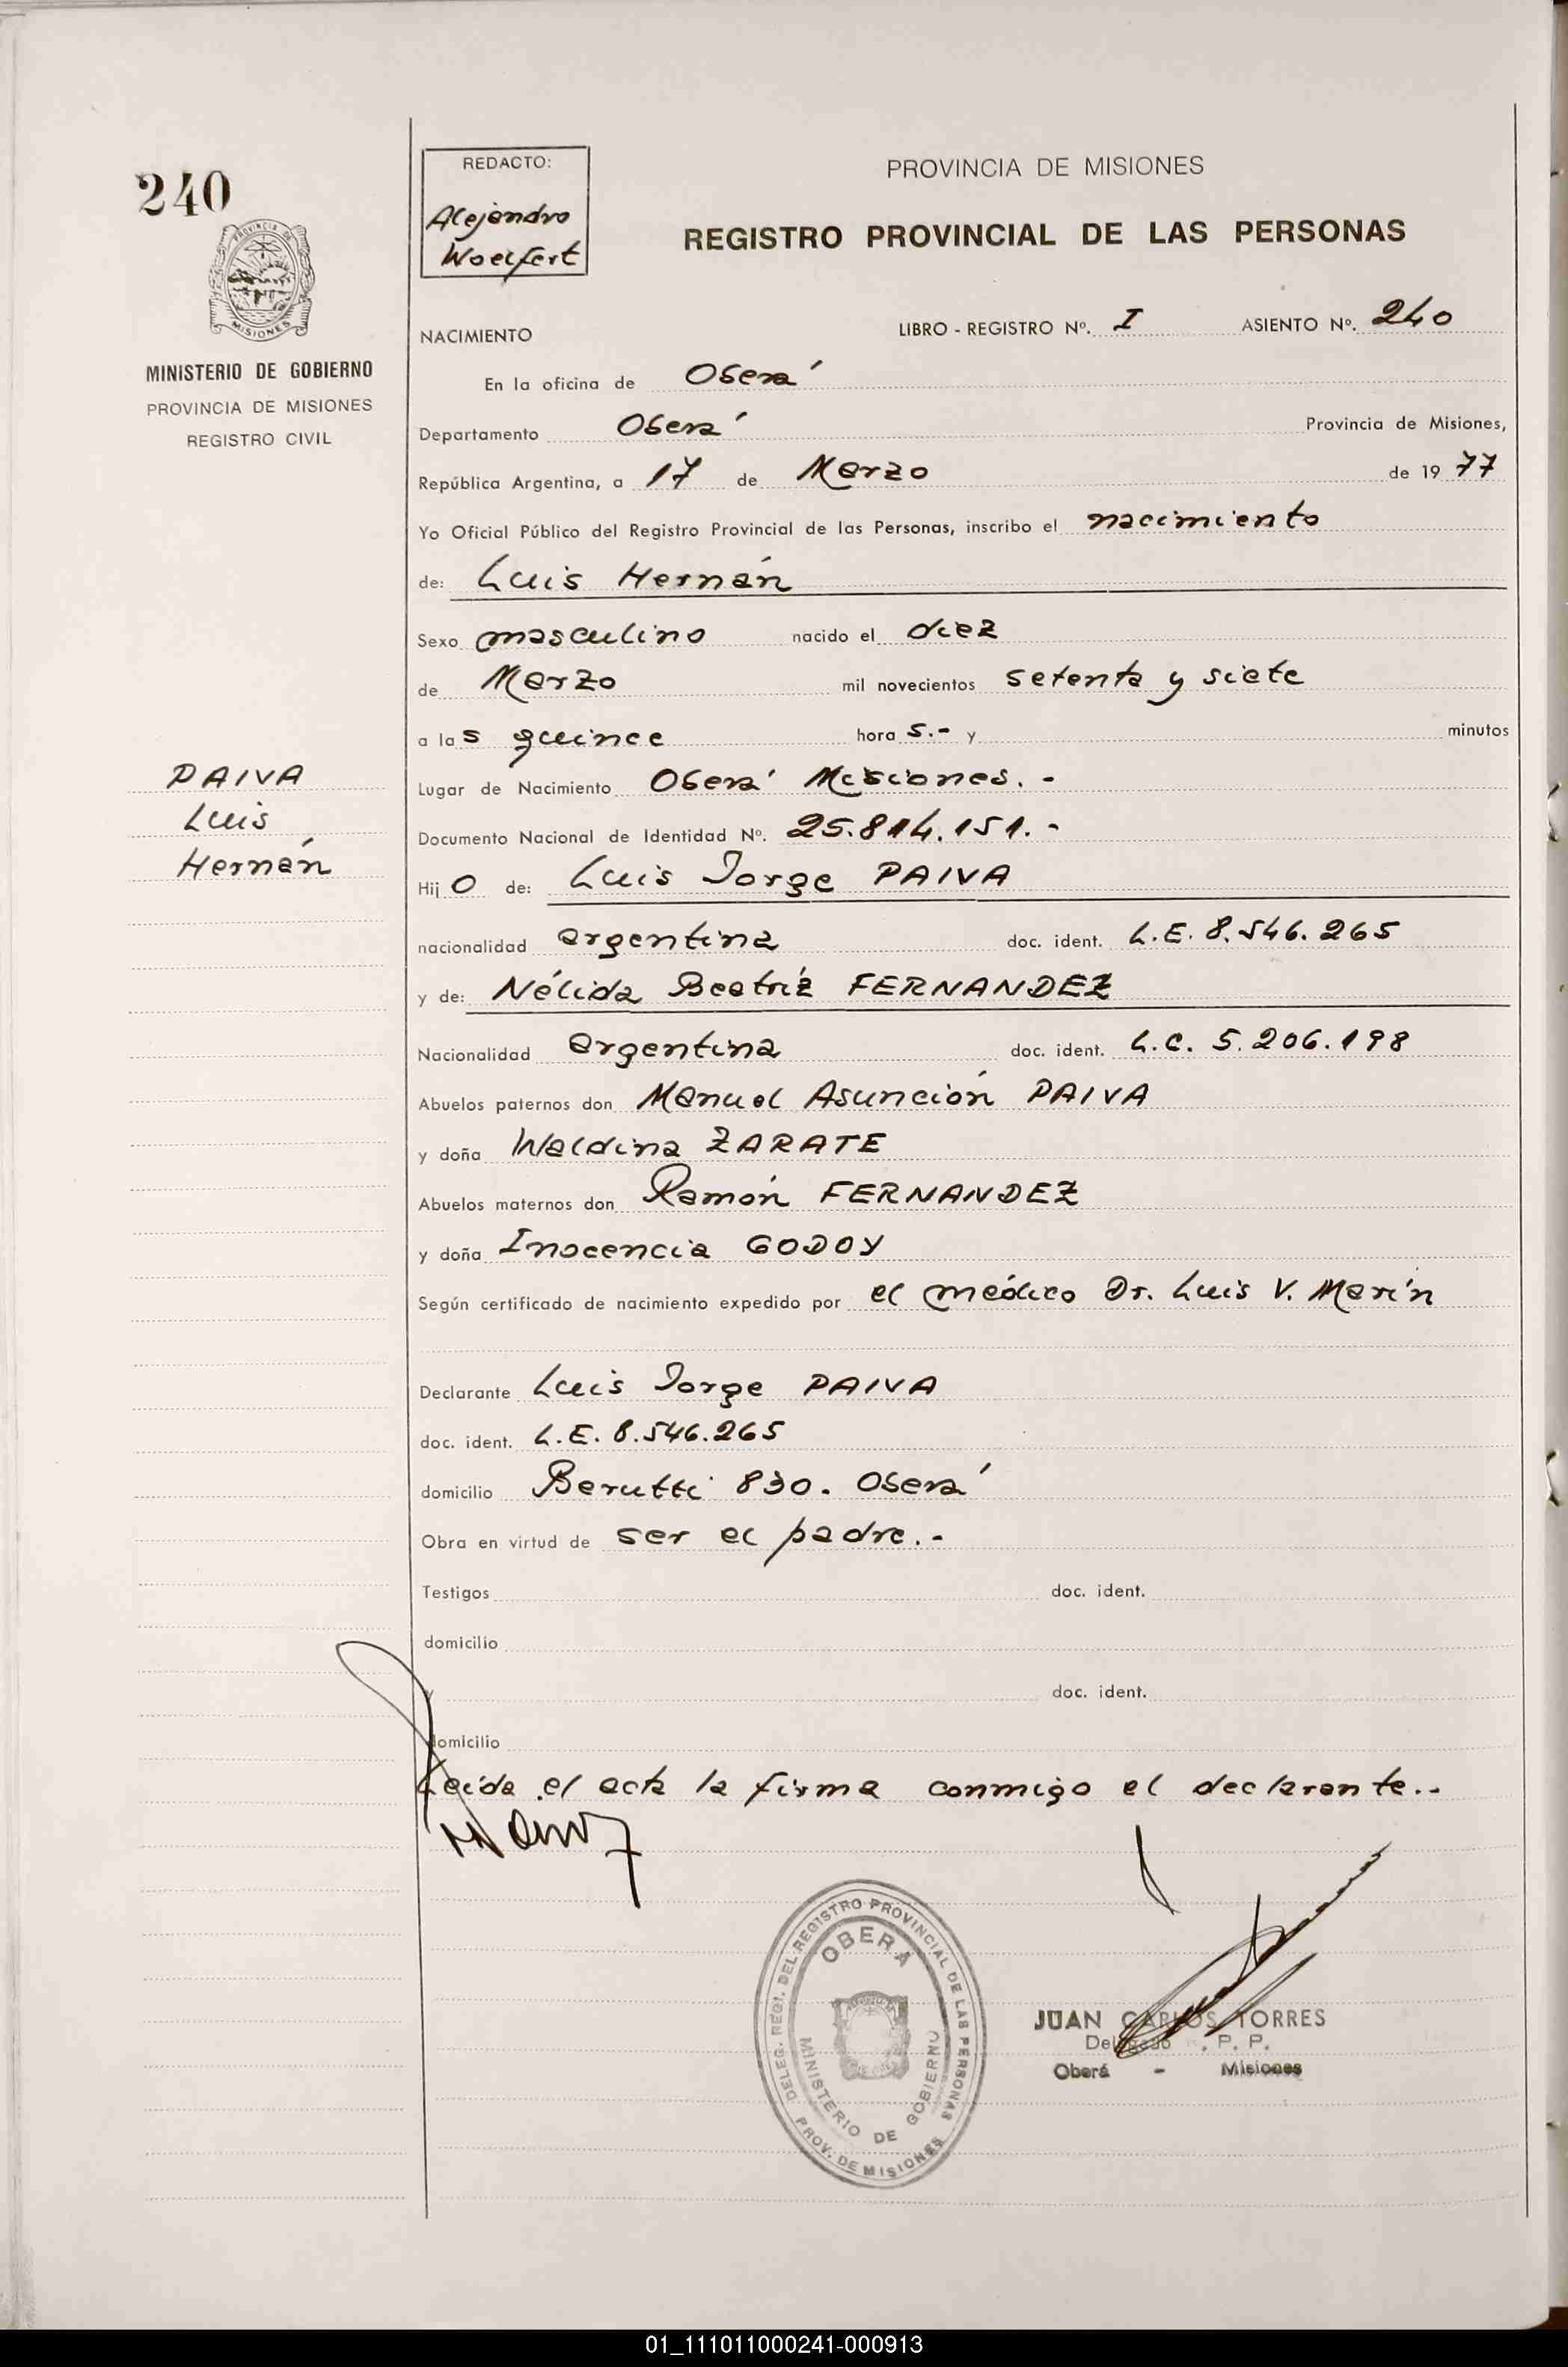 240
PROVINCIA DE
MISIONES
MINISTERIO DE GOBIERNO
PROVINCIA DE MISIONES
REGISTRO CIVIL
PAIVA
Luis
Hernán
REDACTO:
Alejandro
Woelfert
PROVINCIA DE MISIONES
REGISTRO PROVINCIAL DE LAS PERSONAS
NACIMIENTO LIBRO - REGISTRO Nº. I ASIENTO Nº. 240
En la oficina de Oberá
Departamento Oberá Provincia de Misiones,
República Argentina, a 17 de Marzo de 19 77
Yo Oficial Público del Registro Provincial de las Personas, inscribo el nacimiento
de: Luis Hernán
Sexo masculino nacido el diez
de Marzo mil novecientos setenta y siete
a las quince hora s.- y minutos
Lugar de Nacimiento Oberá Misiones. -
Documento Nacional de Identidad Nº. 25.814.151. -
Hij o de: Luis Jorge PAIVA
nacionalidad argentina doc. ident. L.E. 8.546.265
y de: Nélida Beatríz FERNANDEZ
Nacionalidad argentina doc. ident. L.C. 5.206.198
Abuelos paternos don Manuel Asunción PAIVA
y doña Waldina ZARATE
Abuelos maternos don Ramón FERNANDEZ
y doña Inocencia GODOY
Según certificado de nacimiento expedido por el médico Dr. Luis V. Marín
Declarante Luis Jorge PAIVA
doc. ident. L.E. 8.546.265
domicilio Berutti 830. Oberá
Obra en virtud de ser el padre.-
Testigos doc. ident.
domicilio
y doc. ident.
domicilio
Leída el acta la firma conmigo el declarante..
DELEG. REGI. DEL REGISTRO PROVINCIAL DE LAS PERSONAS
OBERÁ
MINISTERIO DE GOBIERNO
PROV. DE MISIONES
JUAN CARLOS TORRES
Delegado R. P. P.
Oberá - Misiones
01_111011000241-000913